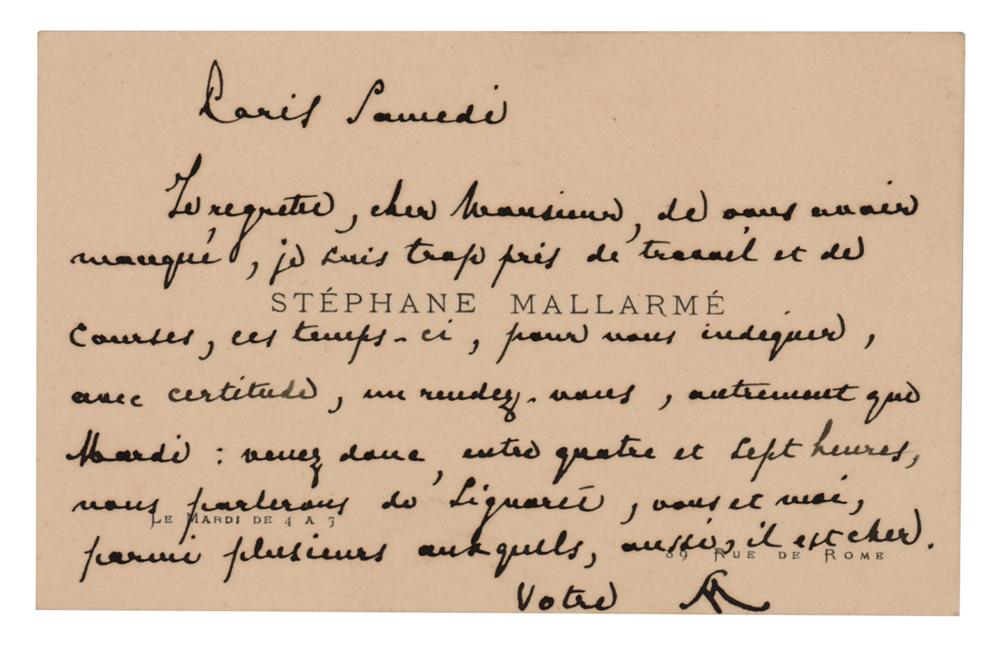 Paris Samedi
Je regrette, cher Monsieur, de vous avoir
manqué, je suis trop pris de travail et de
STÉPHANE MALLARMÉ
courses, ces temps-ci, pour vous indiquer,
avec certitude, un rendez-vous, autrement que
Mardi : venez donc, entre quatre et sept heures,
nous parlerons de Signoret, vous et moi,
LE MARDI DE 4 A 7
parmi plusieurs auxquels, aussi, il est cher.
89 RUE DE ROME
Votre